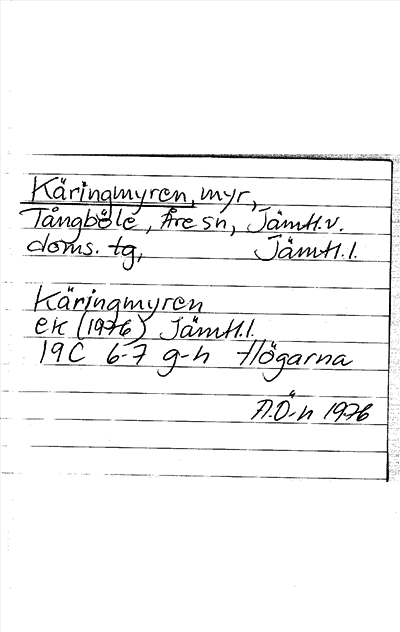 Käringmyren, myr,
Tångböle, Åre sn, Jämtl.v.
doms. tg, Jämtl.l.
Käringmyren
ek (1976) Jämtl.l.
19C 6-7 g-h Högarna
A.Ö-n 1976